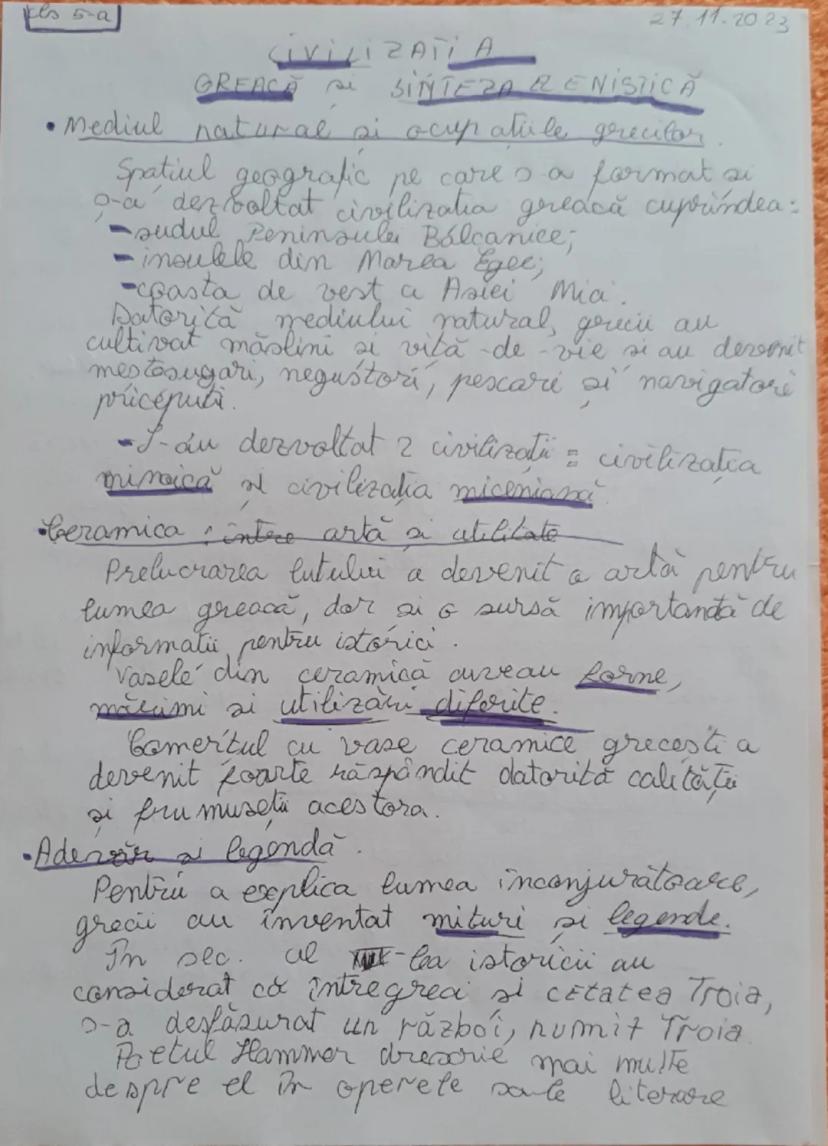 cls 5-a
27.11.2023
CIVILIZAȚIA
GREACĂ și SINTEZA ELENISTICĂ
• Mediul natural și ocupațiile grecilor.
Spațiul geografic pe care s-a format și
s-a dezvoltat civilizația greacă cuprindea:
- sudul Peninsulei Bălcanice;
- insulele din Marea Egee;
- coasta de vest a Asiei Mici.
Datorită mediului natural, grecii au
cultivat măslini și viță-de-vie și au devenit
meștesugari, negustori, pescari și navigatori
pricepuți.
- S-au dezvoltat 2 civilizații: civilizația
minoică și civilizația miceniană
• Ceramica: între artă și utilitate
Prelucrarea lutului a devenit o artă pentru
lumea greacă, dar și o sursă importantă de
informații pentru istorici.
Vasele din ceramică aveau forme,
mărimi și utilizări diferite.
Comerțul cu vase ceramice grecești a
devenit foarte răspândit datorită calității
și frumuseții acestora.
• Adevăr și legendă.
Pentru a explica lumea înconjurătoare,
grecii au inventat mituri și legende.
În sec. al -lea istoricii au
considerat că între greci și cetatea Troia,
s-a desfășurat un război, numit Troia
Poetul Hammer descrie mai multe
despre el în operele sale literare